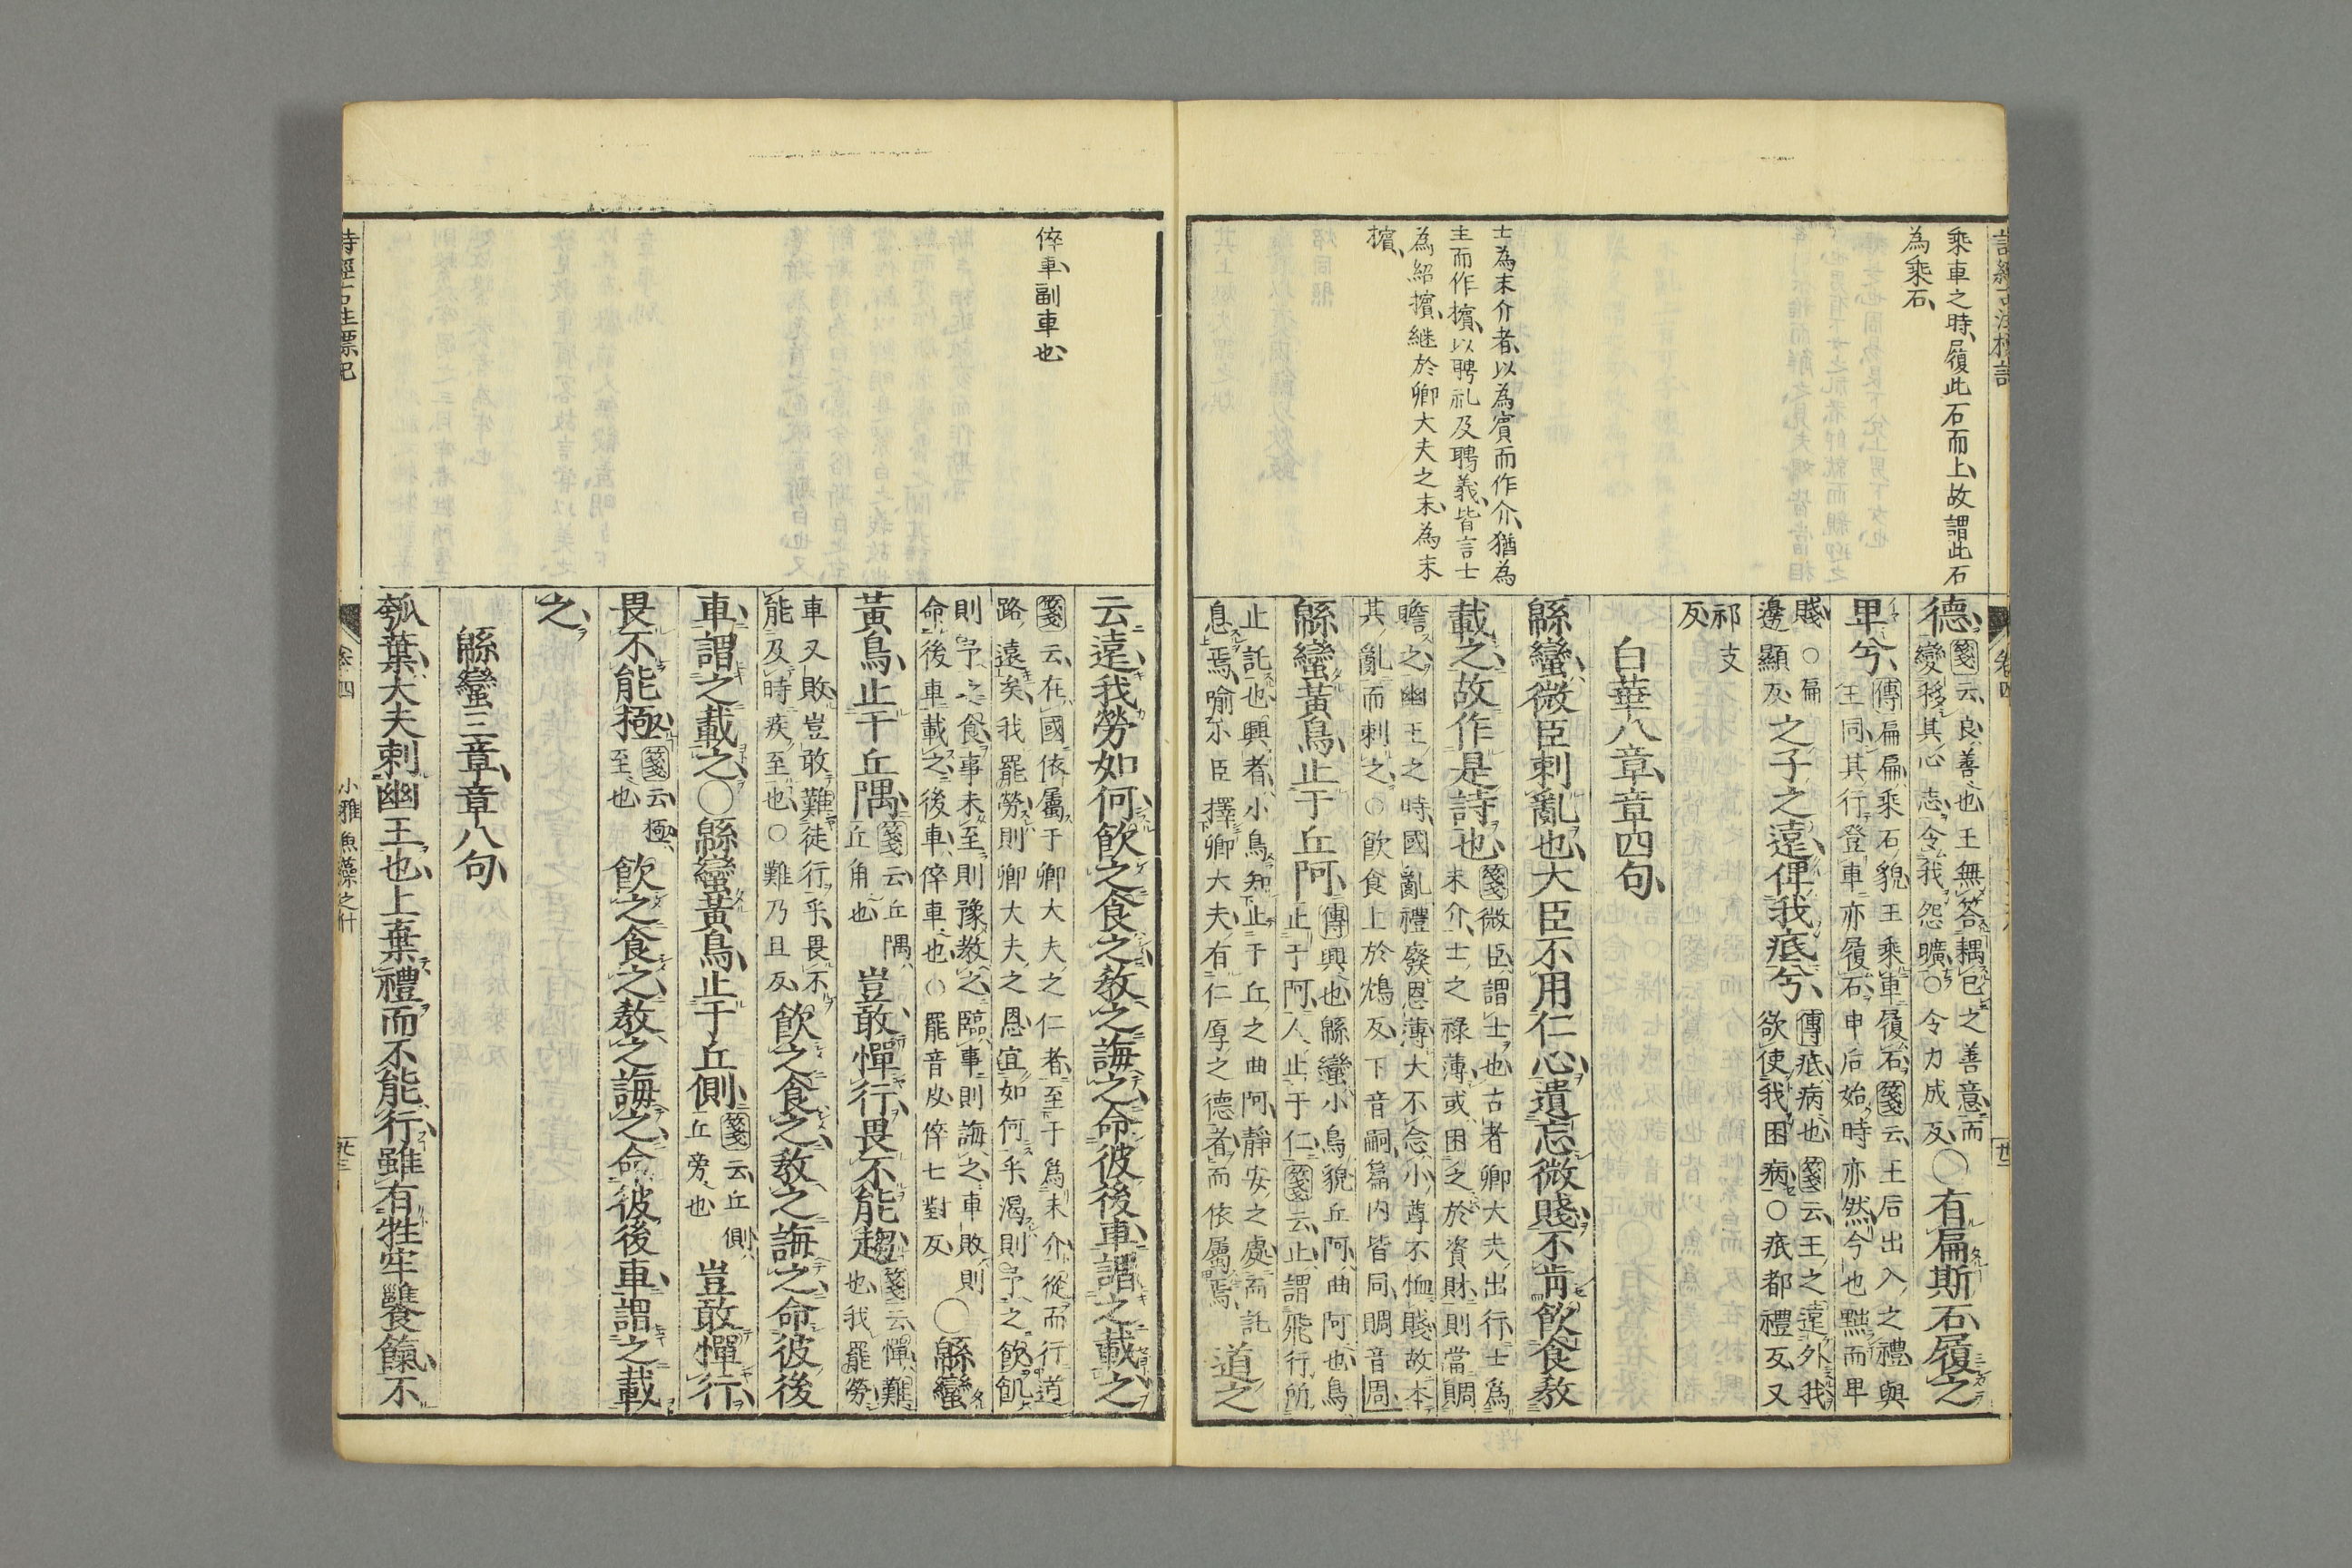 乘車之時、履此石而上、故謂此石
為乘石、
士為末介者、以為賓而作介、猶為
主而作擯、以聘礼及聘義、皆言士
為紹擯、継於卿大夫之末、為末
擯、
德、箋云、良、善也、王無答耦己之善意、而
變移其心志、令我怨曠、○令力成反、○有扁斯石、履之
卑兮、傳扁扁、乘石貌、王乘車履石、箋云、王后出入之禮、與
王同、其行登車、亦履石、申后始時亦然、今也黜而卑
賤、○扁
邊顯反、之子之遠、俾我疷兮、傳疷、病也、箋云、王之遠外我、
欲使我困病、○疷都禮反、又
祁支
反
白華八章、章四句、
緜蠻、微臣刺亂也、大臣不用仁心、遺忘微賤、不肯飲食教
載之、故作是詩也、箋微臣、謂士也、古者卿大夫出行、士爲
末介、士之祿薄、或困乏於資財、則當賙
贍之、幽王之時、國亂禮廢恩薄、大不念小、尊不恤賤、故本
其亂而刺之、○飲食上於鴆反、下音嗣、篇内皆同、賙音周、
緜蠻黃鳥、止于丘阿、傳興也、緜蠻、小鳥貌、丘阿、曲阿也、鳥
止于阿、人止于仁、箋云、止、謂飛行所
止託也、興者、小鳥知止于丘之曲阿靜安之處、而託
息焉、喻小臣擇卿大夫有仁厚之德者、而依屬焉、道之
云遠、我勞如何、飲之食之、教之誨之、命彼後車、謂之載之
箋云、在國依屬于卿大夫之仁者、至于爲末介、從而行、道
路遠矣、我罷勞、則卿大夫之恩宜如何乎、渴則予之飲、飢
則予之食、事未至則豫教之、臨事則誨之、車敗、則
命後車載之、後車、倅車也、○罷音皮、倅七對反、○緜蠻
黃鳥、止于丘隅、箋云、丘隅、
丘角也、豈敢憚行、畏不能趨、箋云、憚、難
也、我罷勞、
車又敗、豈敢難徒行乎、畏不
能及時疾至也、○難乃旦反、飲之食之、教之誨之、命彼後
車、謂之載之、○緜蠻黃鳥、止于丘側、箋云、丘側、
丘旁也、豈敢憚行、
畏不能極、箋云、極、
至也、飲之食之、教之誨之、命彼後車、謂之載
之、
緜蠻三章、章八句、
瓠葉、大夫刺幽王也、上棄禮而不能行、雖有牲牢饔餼、不
倅車、副車也、
卷四
小雅 魚藻之什
廿三